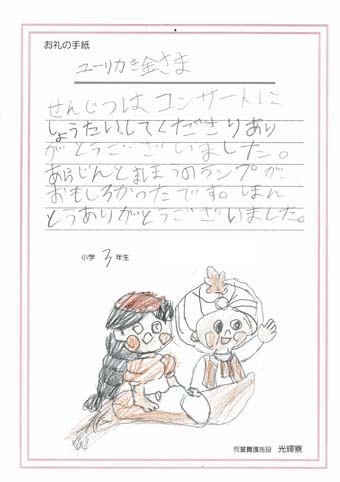 お礼の手紙
ユーリカき金さま
せんじつは、コンサートに
しょうたいしてくださりあり
がとうございました。
あらじんとまほうのランプが
おもしろかったです。ほん
とうありがとうございました。
小学 3 年生
児童養護施設 光輝寮